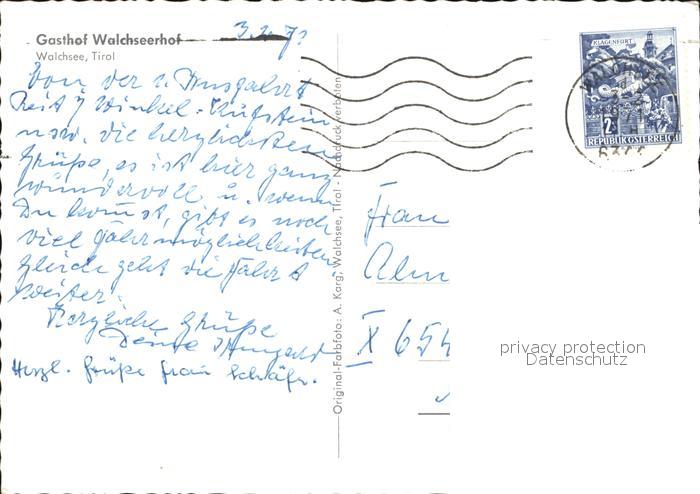 Gasthof Walchseerhof
Walchsee, Tirol
Von der 2. Ausfahrt
Reit i Winkel - Kufstein
usw. die herzlichsten
Grüße, es ist hier ganz
wundervoll u. wenn
Du kommst, gibt es noch
viel Fahrmöglichkeiten
gleich geht die Fahrt
weiter.
Herzliche Grüße
Deine
Herzl. Grüße Frau Schäfer.
Original-Farbfoto: A. Karg, Walchsee, Tirol - Nachdruck verboten
KLAGENFURT
2S
REPUBLIK ÖSTERREICH
WALCHSEE
Frau
X 654
privacy protection
Datenschutz